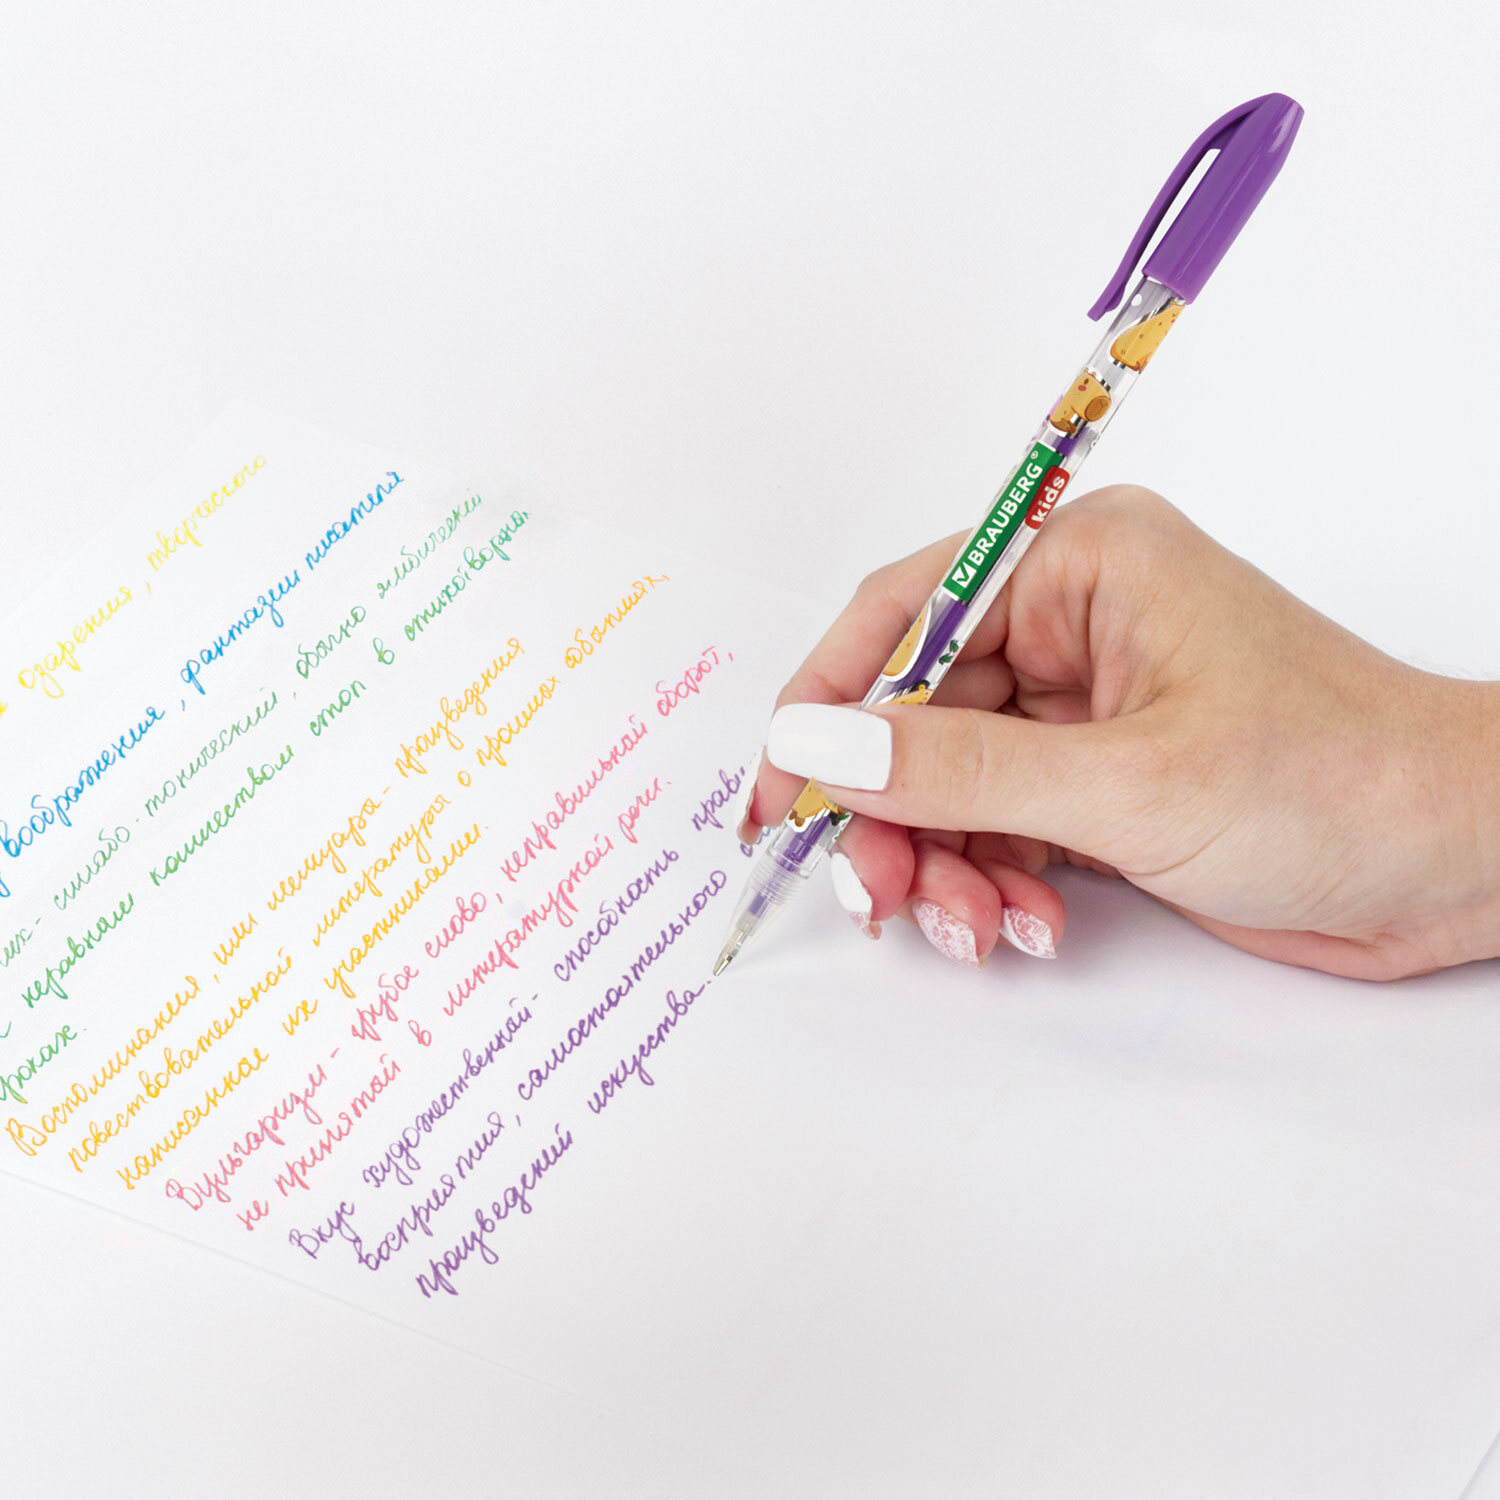 озарения, творческого
воображения, фантазии писателя
силлабо-тонический, обычно ямбический
неравным количеством стоп в стихотворных
строках.
Воспоминания, или мемуары - произведения
повествовательной литературы о прошлых событиях,
написанное их участниками.
Вульгаризм - грубое слово, неправильный оборот,
не принятой в литературной речи.
Вкус художественный - способность
восприятия, самостоятельного
произведений искусства.
BRAUBERG®
kids